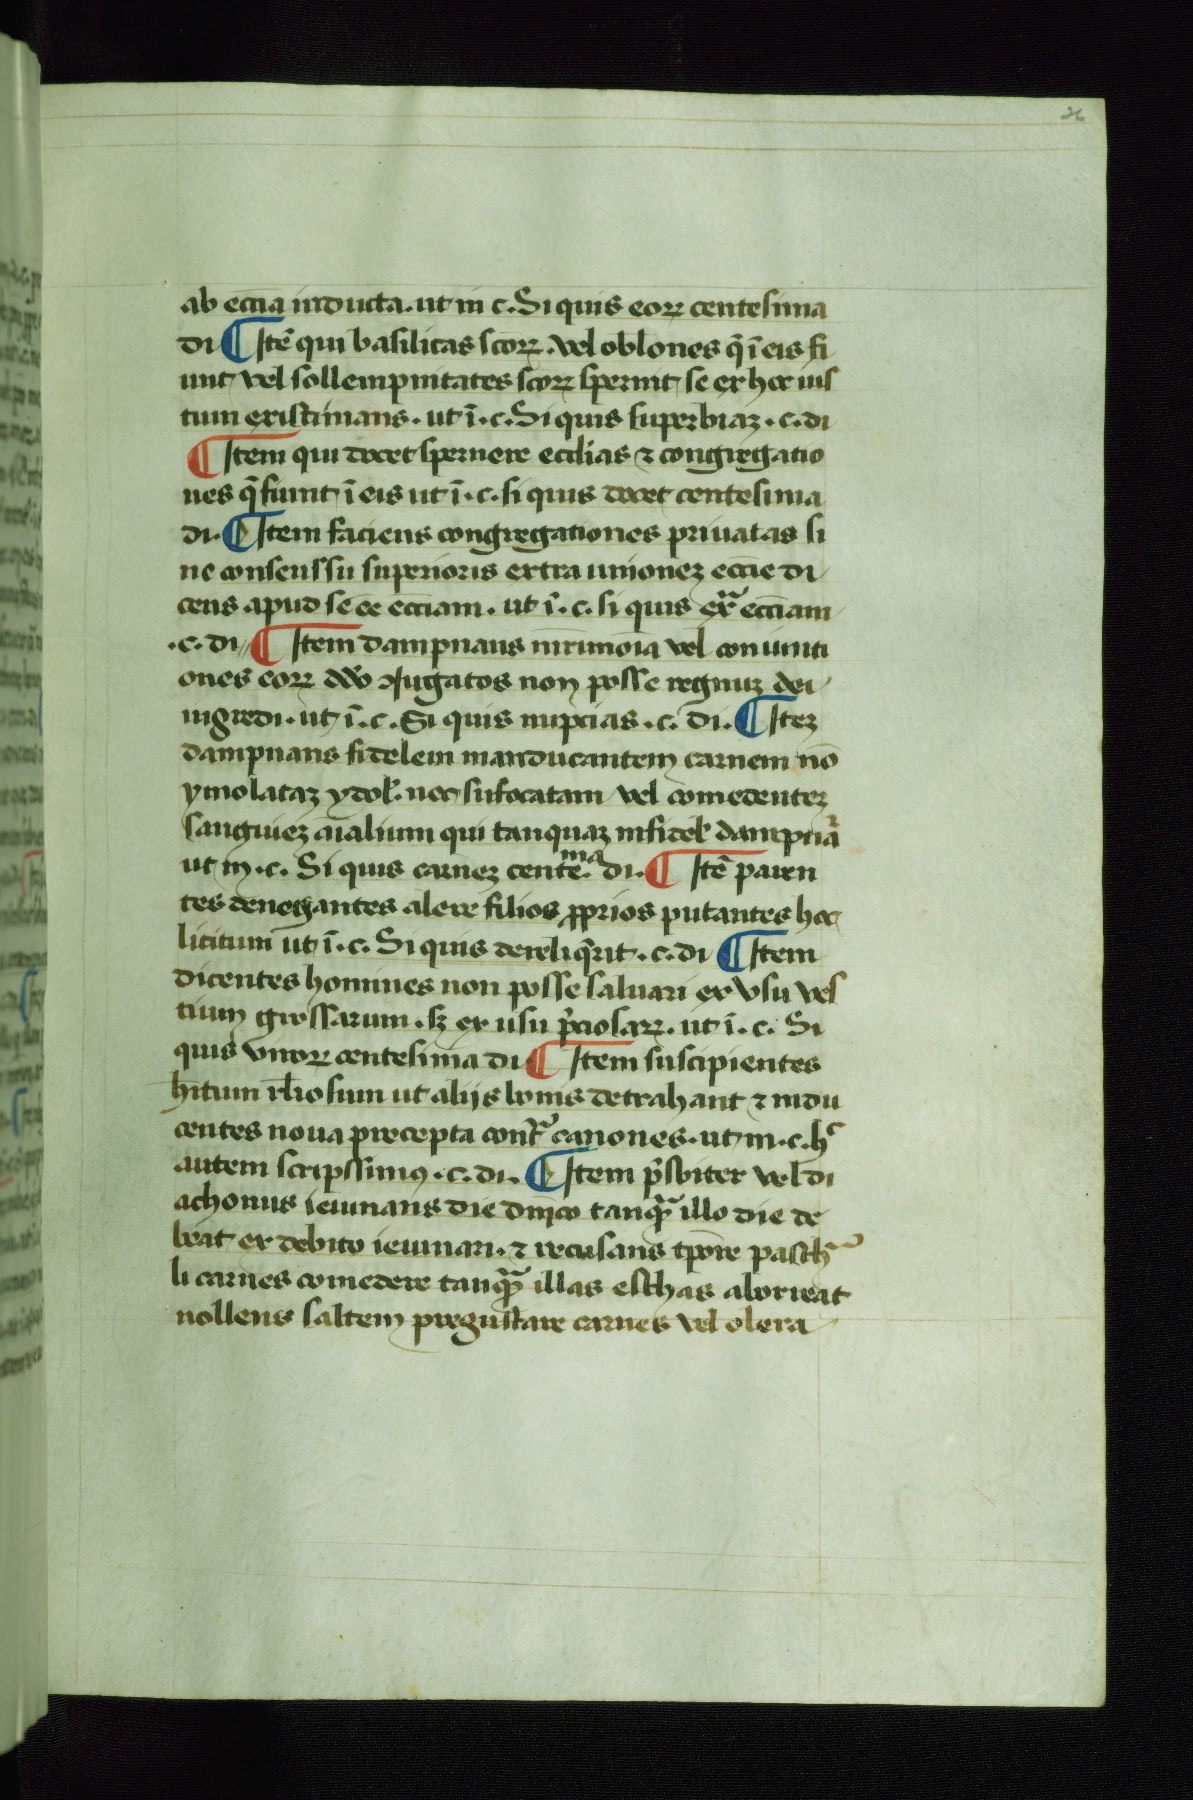 26
ab eccīa inducta. ut in c. Si quis eoꝝ centesima
di ¶ Itē qui basilicas scoꝝ. vel oblones q̄ ī eis fi
unt, vel sollempnitates scoꝝ spernit, se ex hoc ius
tum existimans. ut ī. c. Si quis superbiaꝫ. c. di
¶ Item qui docet spernere ecclias ⁊ congregatio
nes q̄ fiunt, ī eis ut ī. c. si quis docet centesima
di. ¶ Item faciens congregationes priuatas si
ne consenssu superioris extra unioneꝫ eccīe di
cens apud se ēe eccīam. ut ī. c. si quis exͣ eccīam
.c. di ¶ Item dampnans mr̄imōia vel coniuncti
ones eoꝝ dd̄o ꝯiugatos non posse regnuꝫ dei
ingredi. ut ī. c. Si quis nupcias. c. di. ¶ Iteꝫ
dampnans fidelem manducantem carnem nō
ymolataꝫ ydol̓. nec sufocatam vel comedenteꝫ
sanguieꝫ aīalium qui tanquaꝫ infidel̓ dampnāͬ
ut in. c. Si quis carneꝫ cente.ᵐᵃ di. ¶ Itē paren
tes denegantes alere filios ꝓprios putantes hoc
licitum ut ī. c. Si quis dereliq̄rit. c. di ¶ Item
dicentes homines non posse saluari ex vsu ves
tium grossarum. sꝫ ex usu p̄ciosaꝝ. ut ī. c. Si
quis viroꝝ centesima di ¶ Item suscipientes
hitum rl̄iosum ut alijs bonis detrahant ⁊ indu
centes noua precepta contͣ canones. ut in. c. hͨ
autem scripssimꝰ. c. di. ¶ Item p̄sbiter vel di
achonus ieiunans die dn̄ico tanqͣ illo die de
beat ex debito ieiunari. ⁊ recusans tp̄ore paschͣ
li carnes comedere tanqͣ illas eschas aborreat
nollens saltem pregustare carnes vel olera